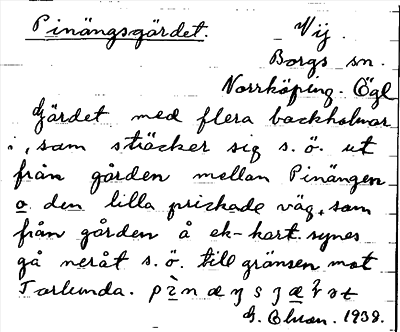 Pinängsgärdet. Vij.
Borgs sn.
Norrköping. Ögl
Gärdet med flera backholmar
i, som sträcker sig s.ö. ut
från gården mellan Pinängen
o den lilla prickade väg, som
från gården å ek-kart. synes
gå neråt s.ö. till gränsen mot
Torlunda.
G. Olson. 1938.